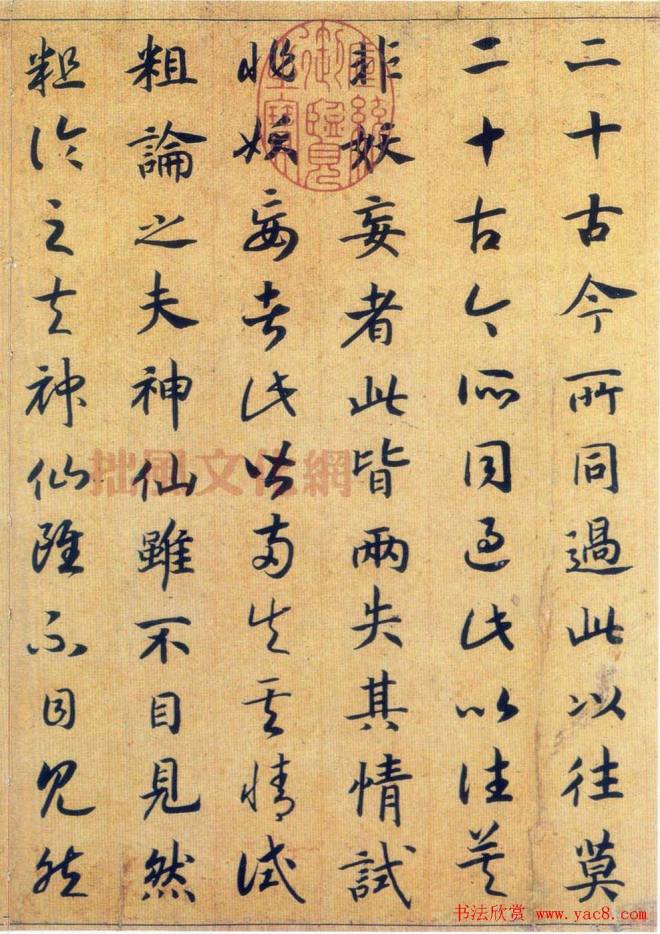 二十古今所同過此以往莫
二十古今所同過此以往莫
非妖妄者此皆兩失其情試
非妖妄者此皆兩失其情試
粗論之夫神仙雖不目見然
粗論之夫神仙雖不目見然
御覽
之寶
拙風文化網
书法欣赏 www.yac8.com